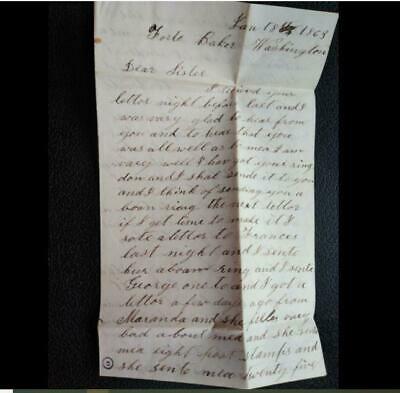 Jan 18 1863
Forte Baker Washington
Dear Sister
I reived your
lettor night before last and I
was vary glad to hear from
you and to hear that you
was all well as to mea I am
vary well I hav got your ring
don and I shal sende it to you
and I think of sending you a
boan ring the next lettor
if I get time to make it I
rote a lettor to Frances
last night and I sente
hur a boan ring and I sente
George one to and I got a
lettor a few days ago from
Maranda and she feels vary
bad about mea and she sente
mea eight post stamps and
she sente mea twenty five